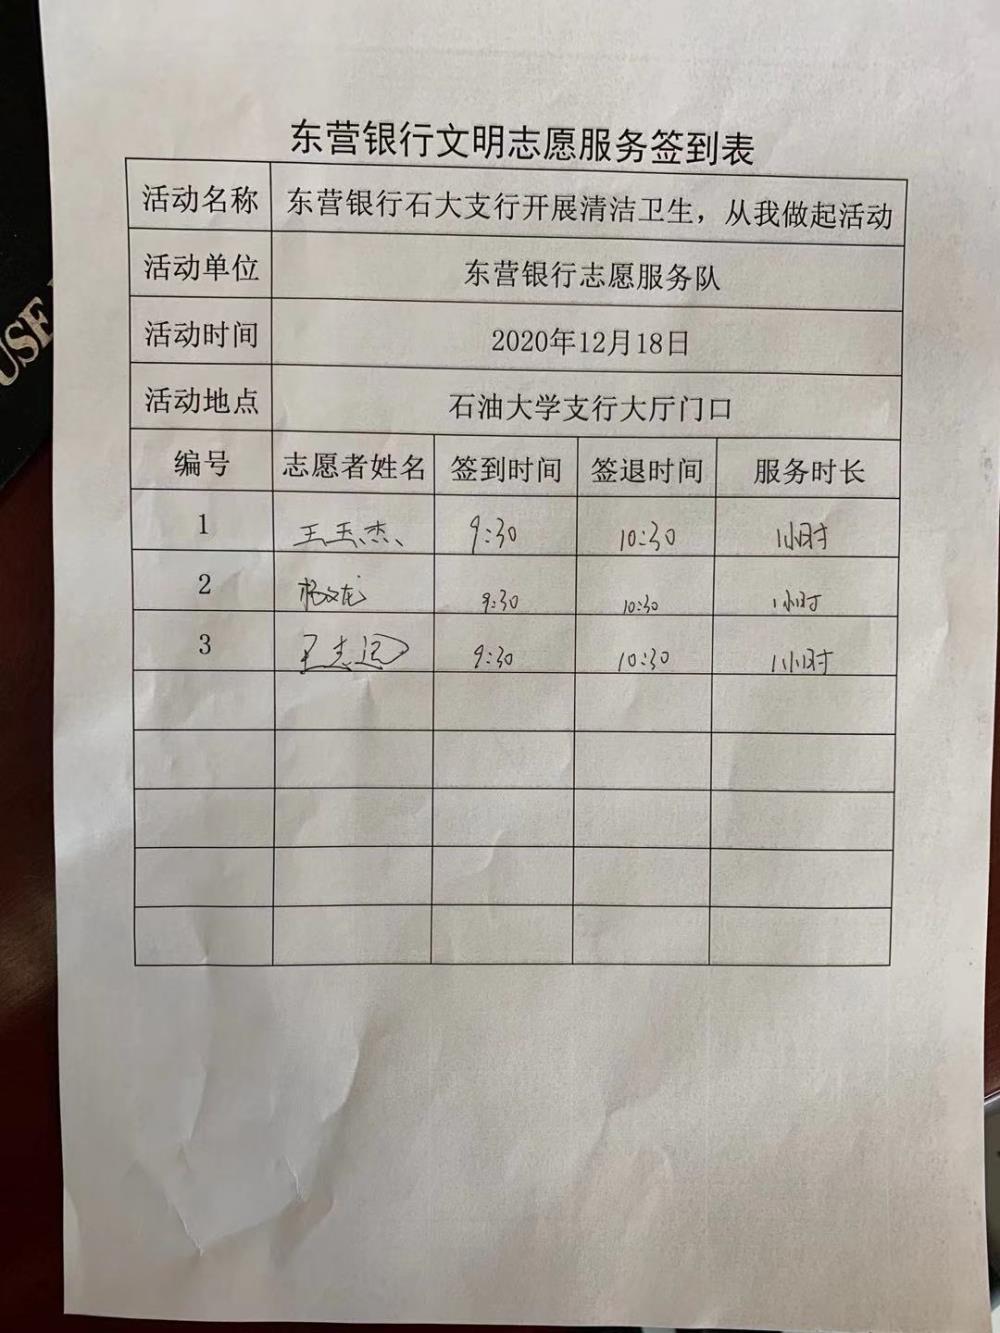 东营银行文明志愿服务签到表
活动名称 东营银行石大支行开展清洁卫生，从我做起活动
活动单位 东营银行志愿服务队
活动时间 2020年12月18日
活动地点 石油大学支行大厅门口
编号 志愿者姓名 签到时间 签退时间 服务时长
1 王玉杰 9:30 10:30 1小时
2 杨文龙 9:30 10:30 1小时
3 王志远 9:30 10:30 1小时
USE